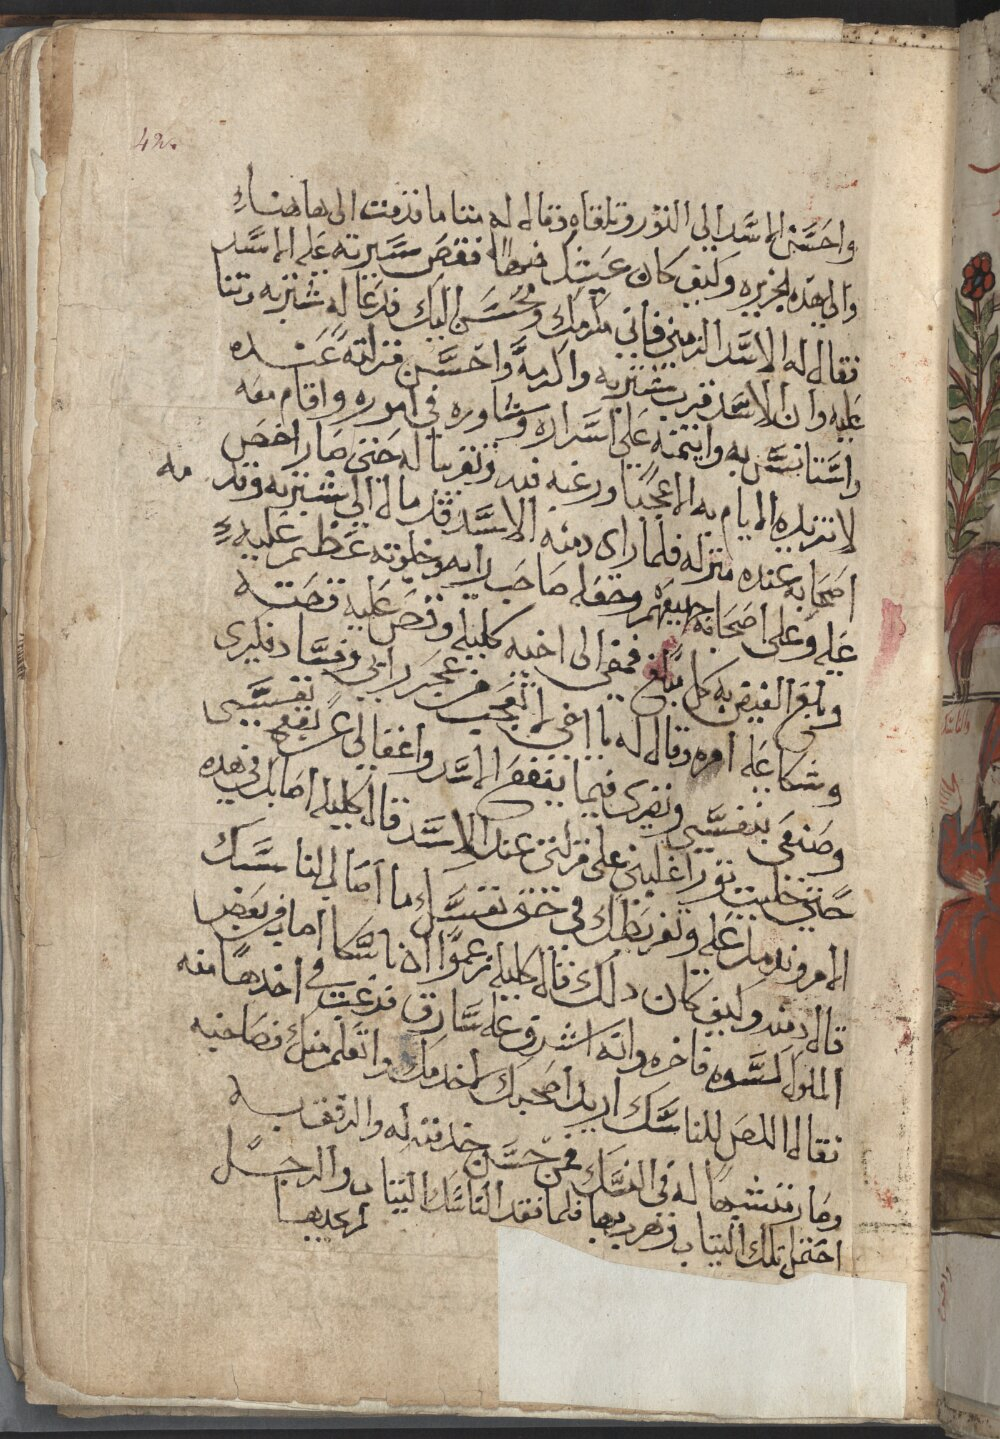 42.
واحسن الاسد الى الثور وتلقاه وقال له متا ما قدمت الى هاهنا
والى هذه الجزيره وكيف كان عيشك فيها فقص سيرته على الاسد
فقال له الاسد الزمني فاني مكرمك ومحسن اليك فدعا له شتربه وثنا
عليه وان الاسد قرب شتربه واكرمه واحسن منزلته عنده
واستانس به وايتمنه على اسراره وشاوره في اموره واقام معه
لا تزيده الايام به الا عجبا ورغبه فيه وتقربا له حتى صار اخص
اصحابه عنده منزله فلما راى دمنه الاسد قد مال الى شتربه وقدمه
عليه وعلى اصحابه جميعهم وجعله صاحب رايه وخلوته عظم عليه
وبلغ الغيض به كل مبلغ فمضى الى اخيه كليله وقص عليه قصته
وشكا عليه امره وقال له يا اخي الا تعجب من عجز رايي وفساد فكرى
وصنعى بنفسي ونضرى فيما ينفع الاسد واغفالى عن نفع نفسي
حتى جلبت ثورا غلبني على منزلتى عند الاسد قال كليله اصابك في هذه
الامر وندمك عليه وتفريطك في حق نفسك ما اصاب الناسك
قال دمنه وكيف كان دلك قال كليله زعموا ان ناسكا اصاب من بعض
الملوك كسوه فاخره وانه اشرق عليه سارق فرغب في اخدها منه
فقال اللص للناسك اريد اصحبك لاخدمك واتعلم منك فصاحبه
وصار متشبها له في النسك فمن حسن خدمته له والرفق به
احتمل تلك التياب وهرب بها فلما فقد الناسك التياب والرجل
لم يجدها